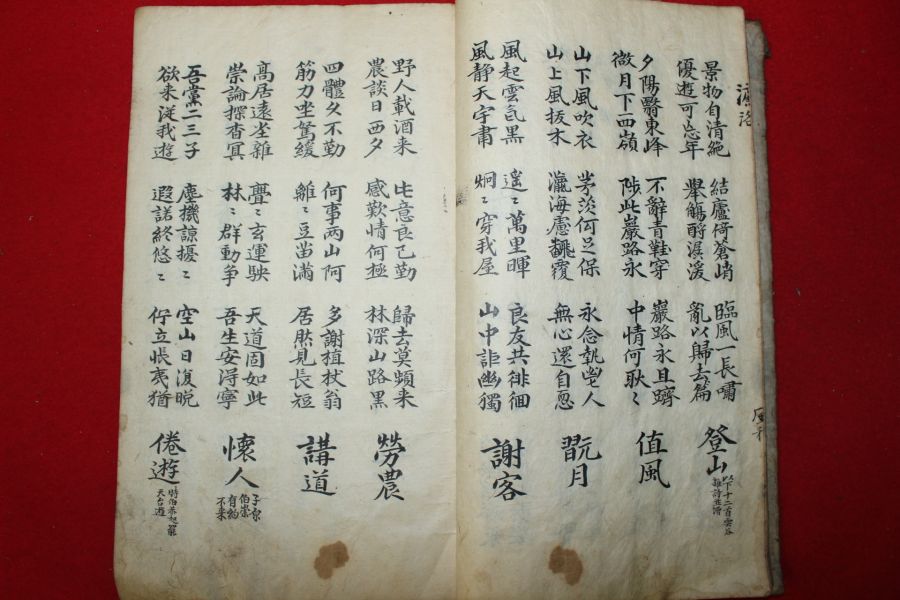 濂洛
風雅
景物自清絶
優遊可忘年
結廬倚蒼峭
擧觴酹潺湲
臨風一長嘯
亂以歸去篇
登山
以下十二首雲谷
雜詩
夕陽翳東峰
微月下西嶺
不辭青鞋穿
陟此巖路永
巖路永且躋
中情何耿〻
值風
山下風吹衣
山上風拔木
茅茨何足保
瀛海慮飜覆
永念執熱人
無心還自怱
翫月
風起雲氣黑
風静天宇肅
遙〻萬里暉
烱〻穿我屋
良友共徘徊
山中詎幽獨
謝客
野人載酒來
農談日西夕
此意良已勤
感歎情何極
歸去莫頻来
林深山路黑
勞農
四體久不勤
筋力坐駑緩
何事兩山阿
離〻豆苗滿
多謝植杖翁
居然見長短
講道
高居遠塵雜
崇論探杳冥
亹〻玄運駛
林〻群動爭
天道固如此
吾生安淂寧
懷人
伯崇
有約
不来
吾黨二三子
欲来從我遊
塵機諒擾〻
遐諾終悠〻
空山日復晚
佇立悵夷猶
倦遊
天台遊